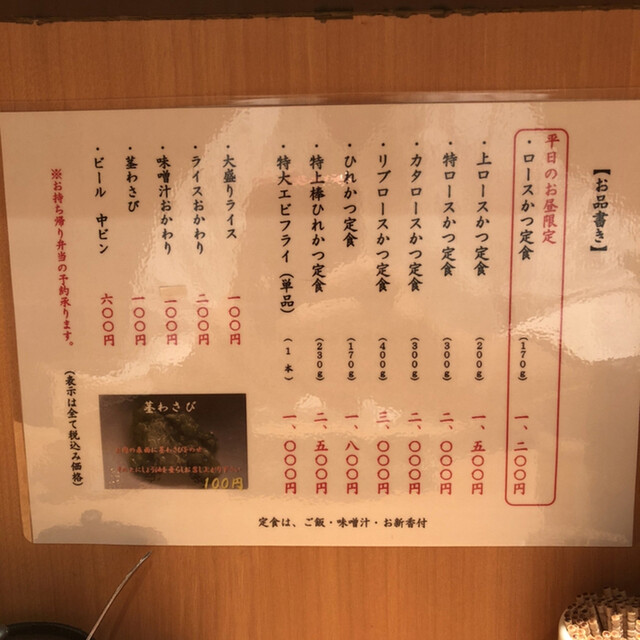 【お品書き】
平日のお昼限定
・ロースかつ定食 (170g) 一、二〇〇円
・上ロースかつ定食 (200g) 一、五〇〇円
・特ロースかつ定食 (300g) 二、〇〇〇円
・カタロースかつ定食 (300g) 二、〇〇〇円
・リブロースかつ定食 (400g) 三、〇〇〇円
・ひれかつ定食 (170g) 一、八〇〇円
・特上棒ひれかつ定食 (230g) 二、五〇〇円
・特大エビフライ(単品) (1本) 一、〇〇〇円
・大盛りライス 一〇〇円
・ライスおかわり 二〇〇円
・味噌汁おかわり 一〇〇円
・茎わさび 一〇〇円
・ビール 中ビン 六〇〇円
※お持ち帰り弁当の予約承ります。
(表示は全て税込み価格)
茎わさび
100円
定食は、ご飯・味噌汁・お新香付